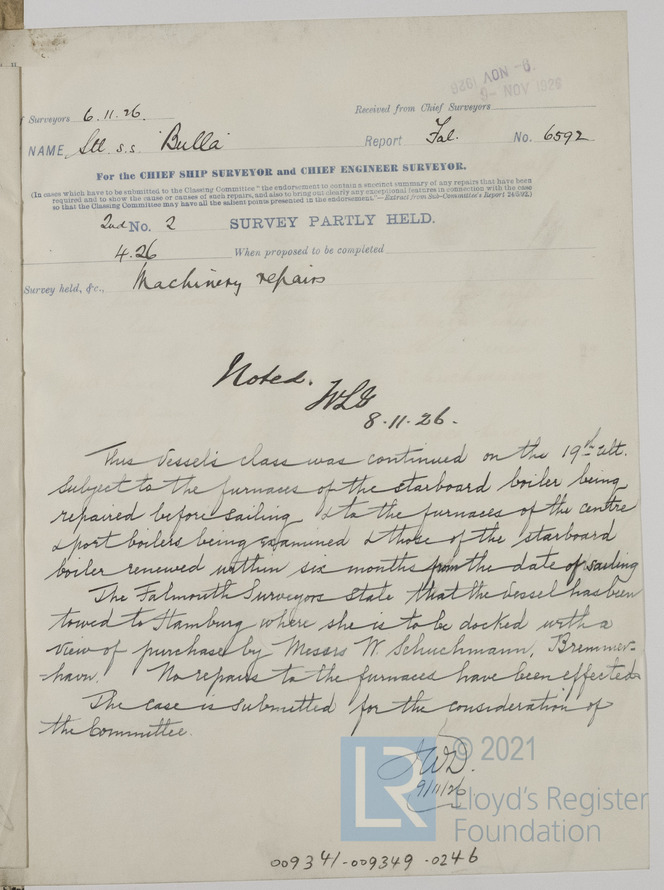 9261 NOV -6.
9- NOV 1926
Surveyors 6.11.26. Received from Chief Surveyors
NAME Stl s.s "Bulla" Report Fal. No. 6592
For the CHIEF SHIP SURVEYOR and CHIEF ENGINEER SURVEYOR.
(In cases which have to be submitted to the Classing Committee "the endorsement to contain a succinct summary of any repairs that have been
required and to show the cause or causes of such repairs, and also to bring out clearly any exceptional features in connection with the case
so that the Classing Committee may have all the salient points presented in the endorsement."—Extract from Sub-Committee's Report 24/5/92.)
2nd No. 2 SURVEY PARTLY HELD.
4.26 When proposed to be completed
Survey held, &c., Machinery repairs
Noted.
WLG
8.11.26.
This Vessel's class was continued on the 19th ult.
Subject to the furnaces of the starboard boiler being
repaired before sailing & to the furnaces of the centre
& port boilers being examined & those of the starboard
boiler renewed within six months from the date of sailing
The Falmouth Surveyors state that the Vessel has been
towed to Hamburg where she is to be docked with a
view of purchase by Messrs W. Schuchmann, Bremmer-
havn. No repairs to the furnaces have been effected.
The case is submitted for the consideration of
the Committee.
JWD.
9/11/26
LR
© 2021
Lloyd's Register
Foundation
009341-009349-0246